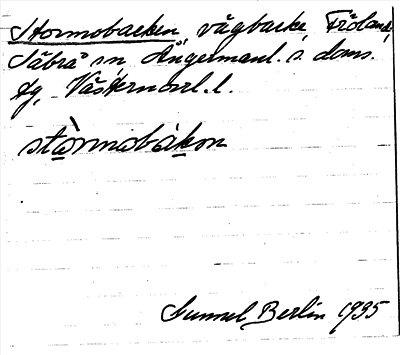 Stormobacken, vägbacke, Fröland,
Säbrå sn Ångermanl. s. doms.
tg, Västernorrl. l.
stòrmobàkon
Gunnel Berlin 1935